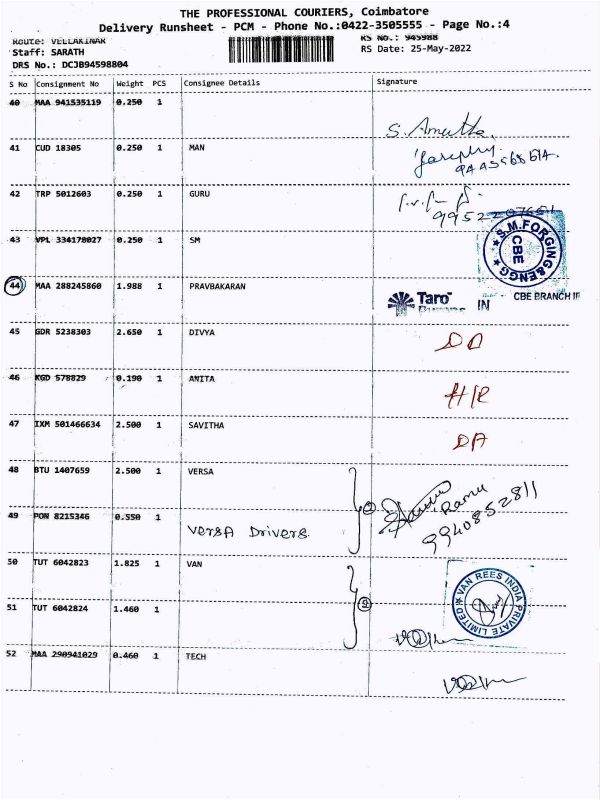 THE PROFESSIONAL COURIERS, Coimbatore
Delivery Runsheet - PCM - Phone No.:0422-3505555 - Page No.:4
Route: VELLAKINAR RS No.: 945988
Staff: SARATH RS Date: 25-May-2022
DRS No.: DCJB94598804
S No Consignment No Weight PCS Consignee Details Signature
40 MAA 941535119 0.250 1
S. Amutha
41 CUD 18305 0.250 1 MAN
42 TRP 5012603 0.250 1 GURU
43 VPL 334178027 0.250 1 SM
S.M.FORGING&ENGG CBE
44 MAA 288245860 1.988 1 PRAVBAKARAN
Taro Pumps IN CBE BRANCH
45 GDR 5238303 2.650 1 DIVYA
46 KGD 578829 0.190 1 ANITA
H/R
47 IXM 501466634 2.500 1 SAVITHA
DA
48 BTU 1407659 2.500 1 VERSA
2 Ramu
9940852811
49 PON 8215346 0.550 1 VERSA Drivers
50 TUT 6042823 1.825 1 VAN
VAN REES INDIA PRIVATE LIMITED
51 TUT 6042824 1.460 1
52 MAA 290941029 0.460 1 TECH